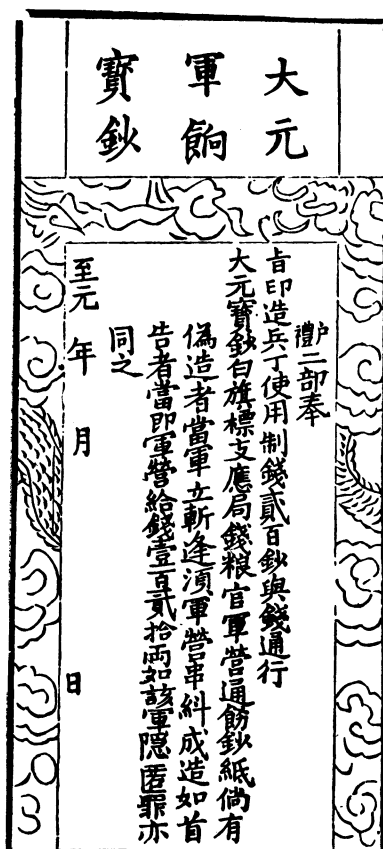 大元
軍餉
寳鈔
户禮二部奉
㫖印造兵丁使用制錢貳百鈔與錢通行
大元寳鈔白旗標支應局錢粮官軍營通飭鈔紙倘有
偽造者當軍立斬逢湏軍營串糾成造如首
告者當即軍營給錢壹百貳拾両如該軍隠匿罪亦
同之
至元 年 月 日